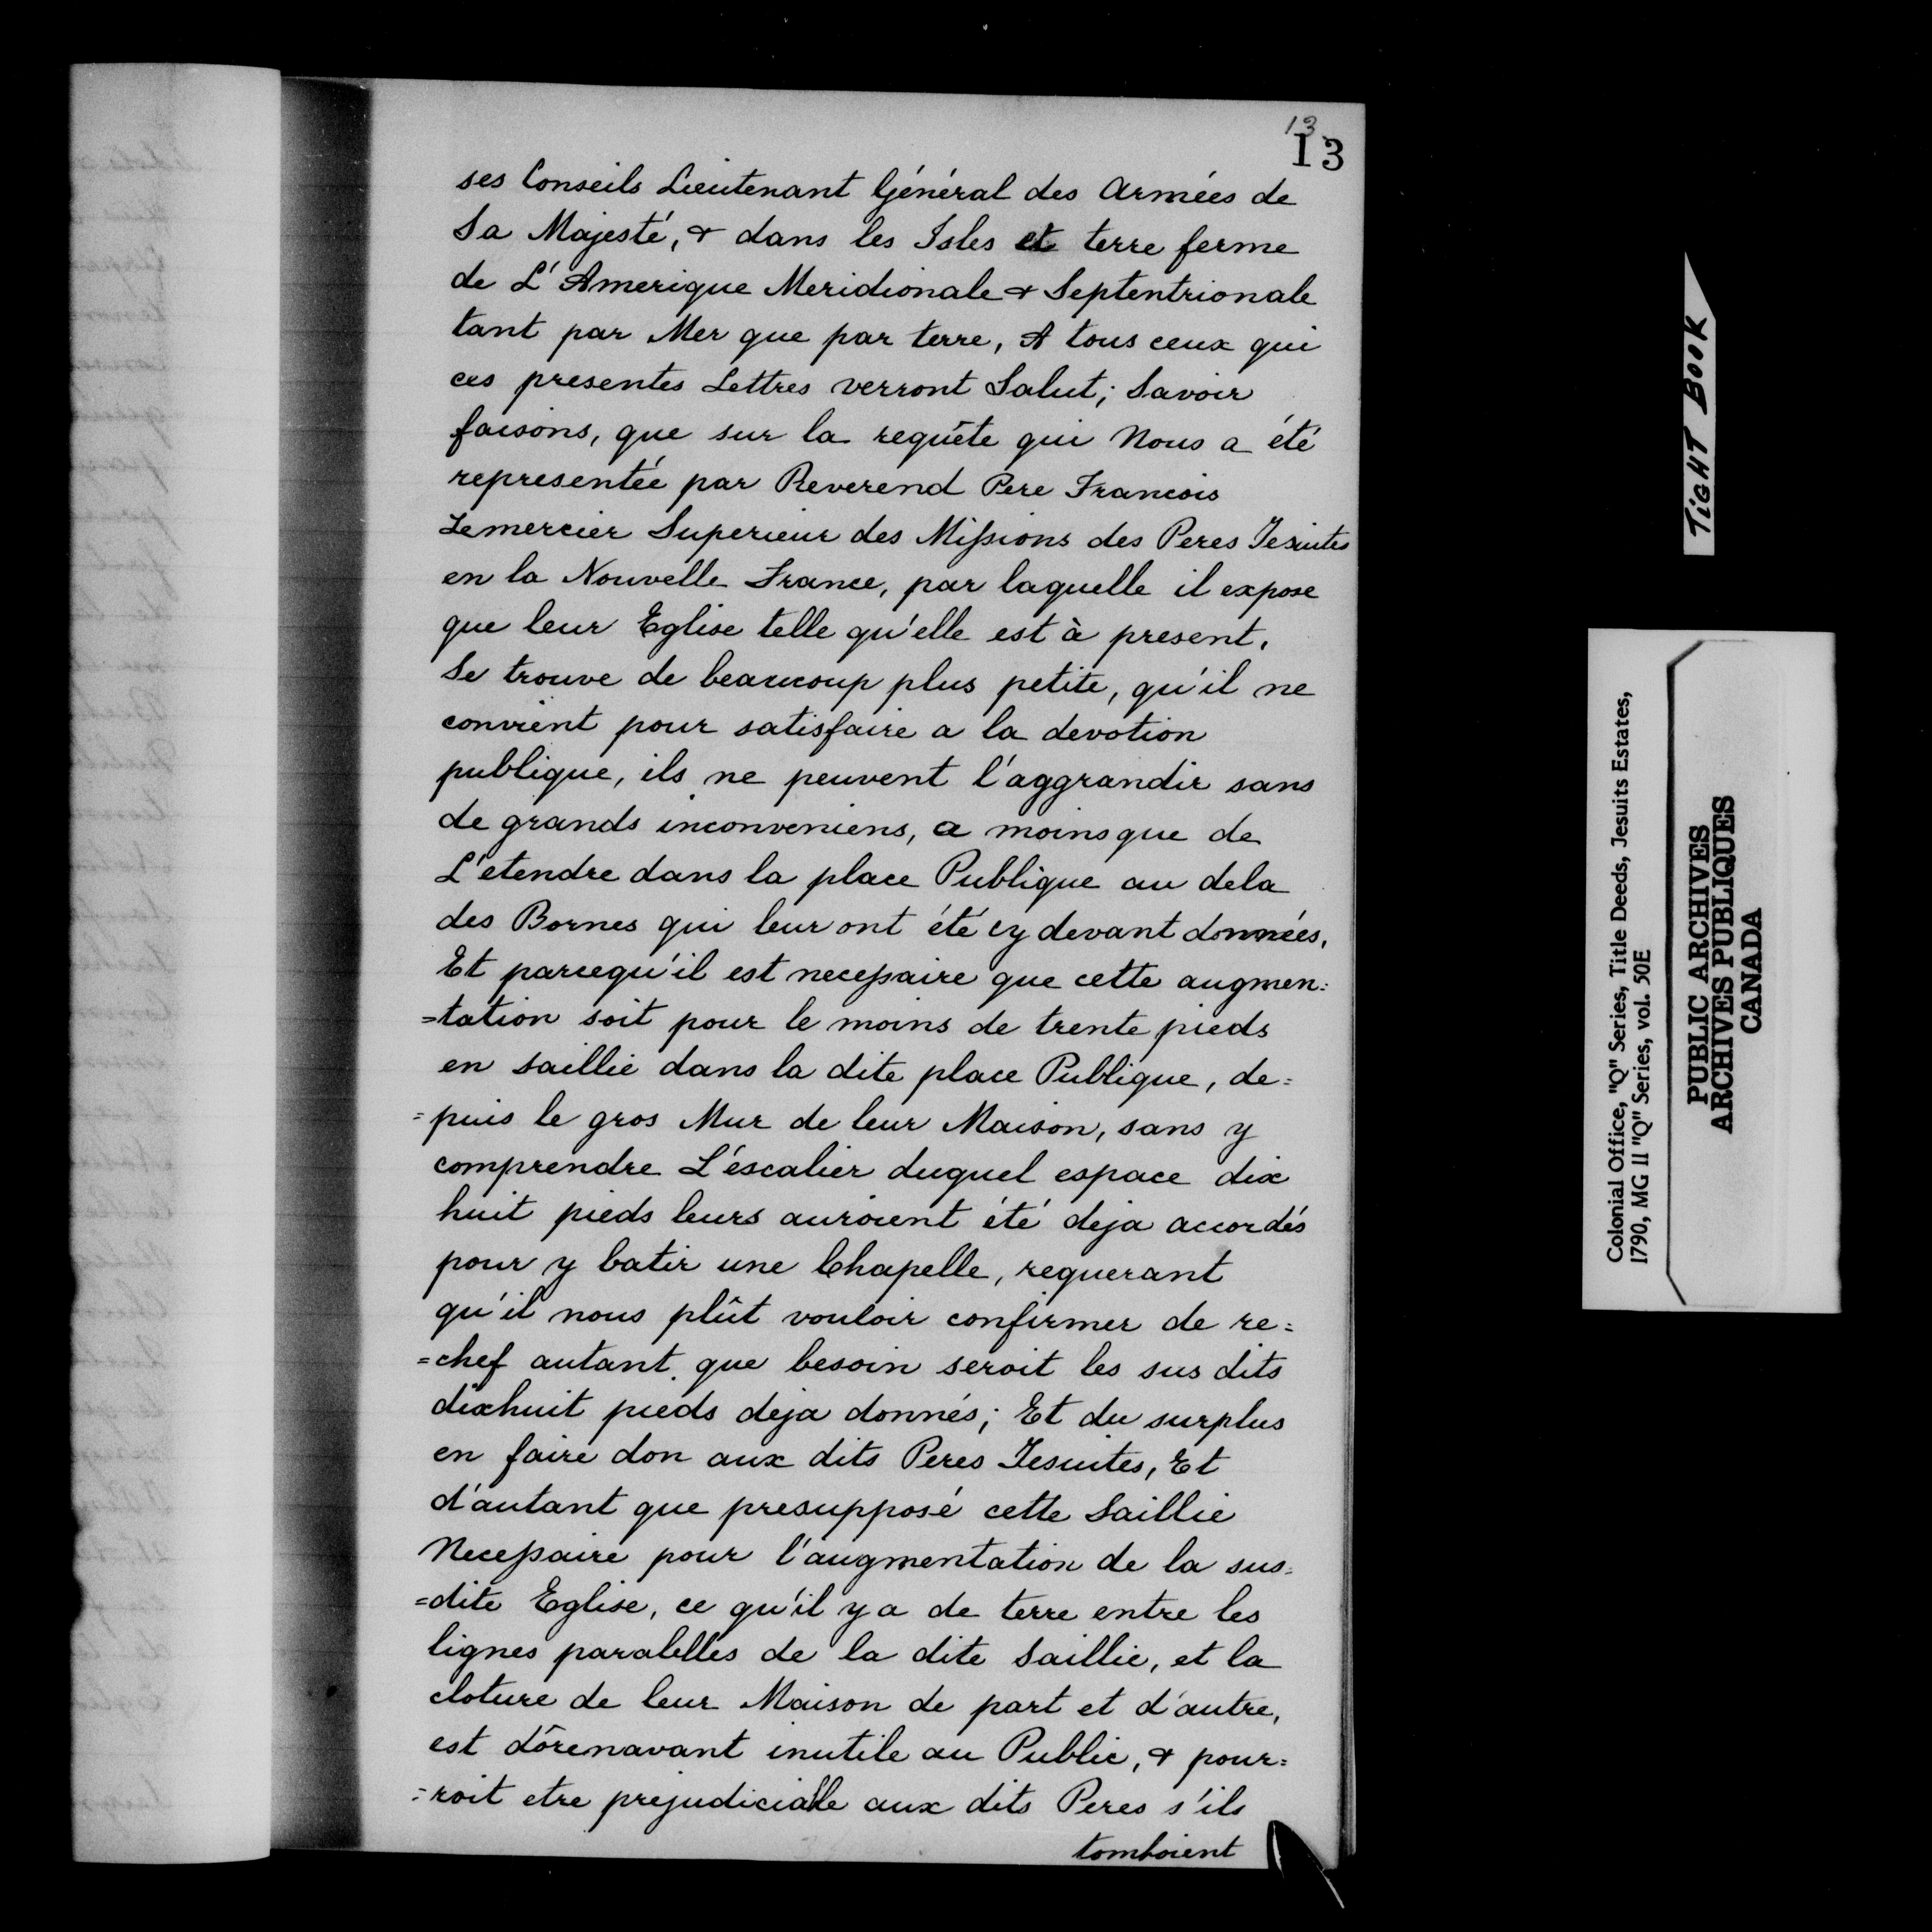 13
13
ses Conseils Lieutenant Général des Armées de
Sa Majesté, & dans les Isles et terre ferme
de L'Amerique Meridionale & Septentrionale
tant par Mer que par terre, A tous ceux qui
ces presentes Lettres verront Salut; Savoir
faisons, que sur la requête qui Nous a été
representée par Reverend Pere Francois
Lemercier Superieur des Missions des Peres Jesuites
en la Nouvelle France, par laquelle il expose
que leur Eglise telle qu'elle est à present,
Se trouve de beaucoup plus petite, qu'il ne
convient pour satisfaire a la devotion
publique, ils ne peuvent l'aggrandir sans
de grands inconveniens, a moins que de
L'etendre dans la place Publique au dela
des Bornes qui leur ont été cy devant données,
Et parcequ'il est necessaire que cette augmen=
=tation soit pour le moins de trente pieds
en saillie dans la dite place Publique, de=
=puis le gros Mur de leur Maison, sans y
comprendre L'éscalier duquel espace dix
huit pieds leurs auroient été deja accordés
pour y batir une Chapelle, requerant
qu'il nous plût vouloir confirmer de re=
=chef autant que besoin seroit les sus dits
dixhuit pieds deja donnés; Et du surplus
en faire don aux dits Peres Jesuites, Et
d'autant que presupposé cette Saillie
Necessaire pour l'augmentation de la sus=
=dite Eglise, ce qu'il y a de terre entre les
lignes paralelles de la dite Saillie, et la
cloture de leur Maison de part et d'autre,
est dôrenavant inutile au Public, & pour=
=roit etre prejudicialle aux dits Peres s'ils
tomboient
TIGHT BOOK
Colonial Office, "Q" Series, Title Deeds, Jesuits Estates,
1790, MG 11 "Q" Series, vol. 50E
PUBLIC ARCHIVES
ARCHIVES PUBLIQUES
CANADA